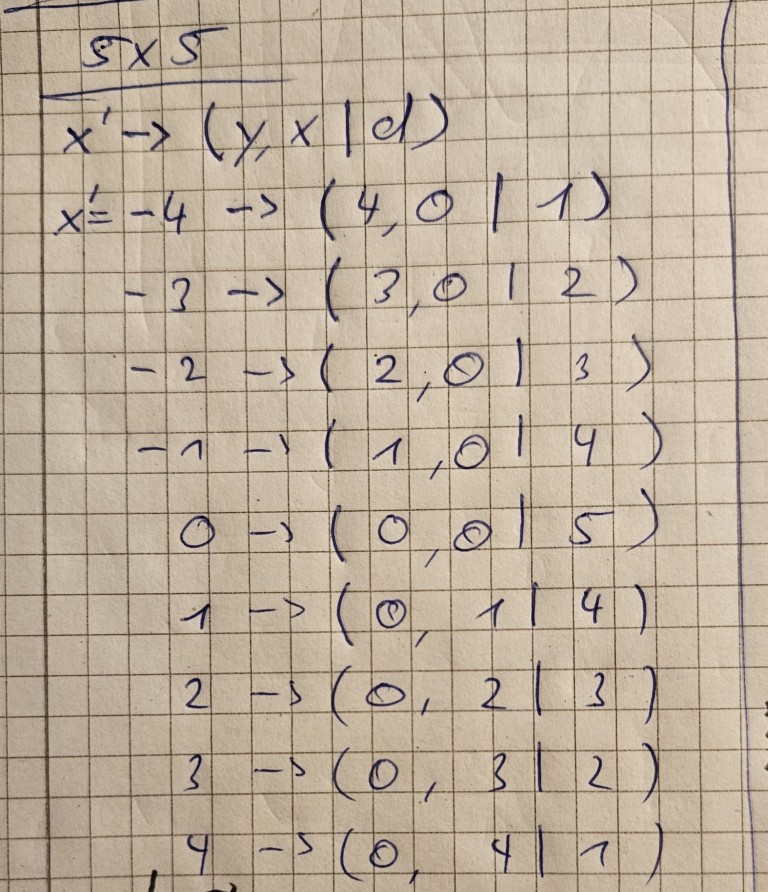 5x5
x' -> (y, x | d)
x' = -4 -> (4, 0 | 1)
-3 -> (3, 0 | 2)
-2 -> (2, 0 | 3)
-1 -> (1, 0 | 4)
0 -> (0, 0 | 5)
1 -> (0, 1 | 4)
2 -> (0, 2 | 3)
3 -> (0, 3 | 2)
4 -> (0, 4 | 1)